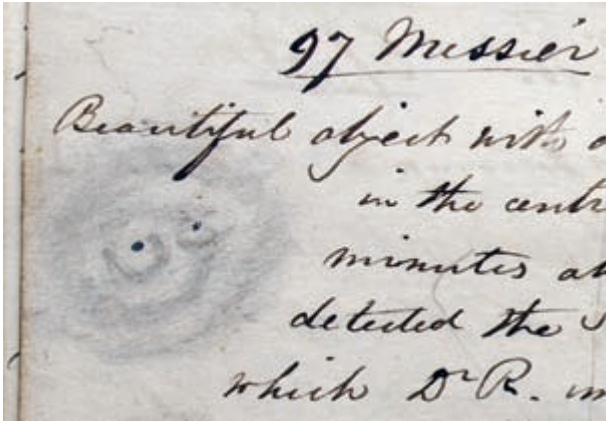 97 Messier
Beautiful object with
in the
minutes
detected the
which Dr R.